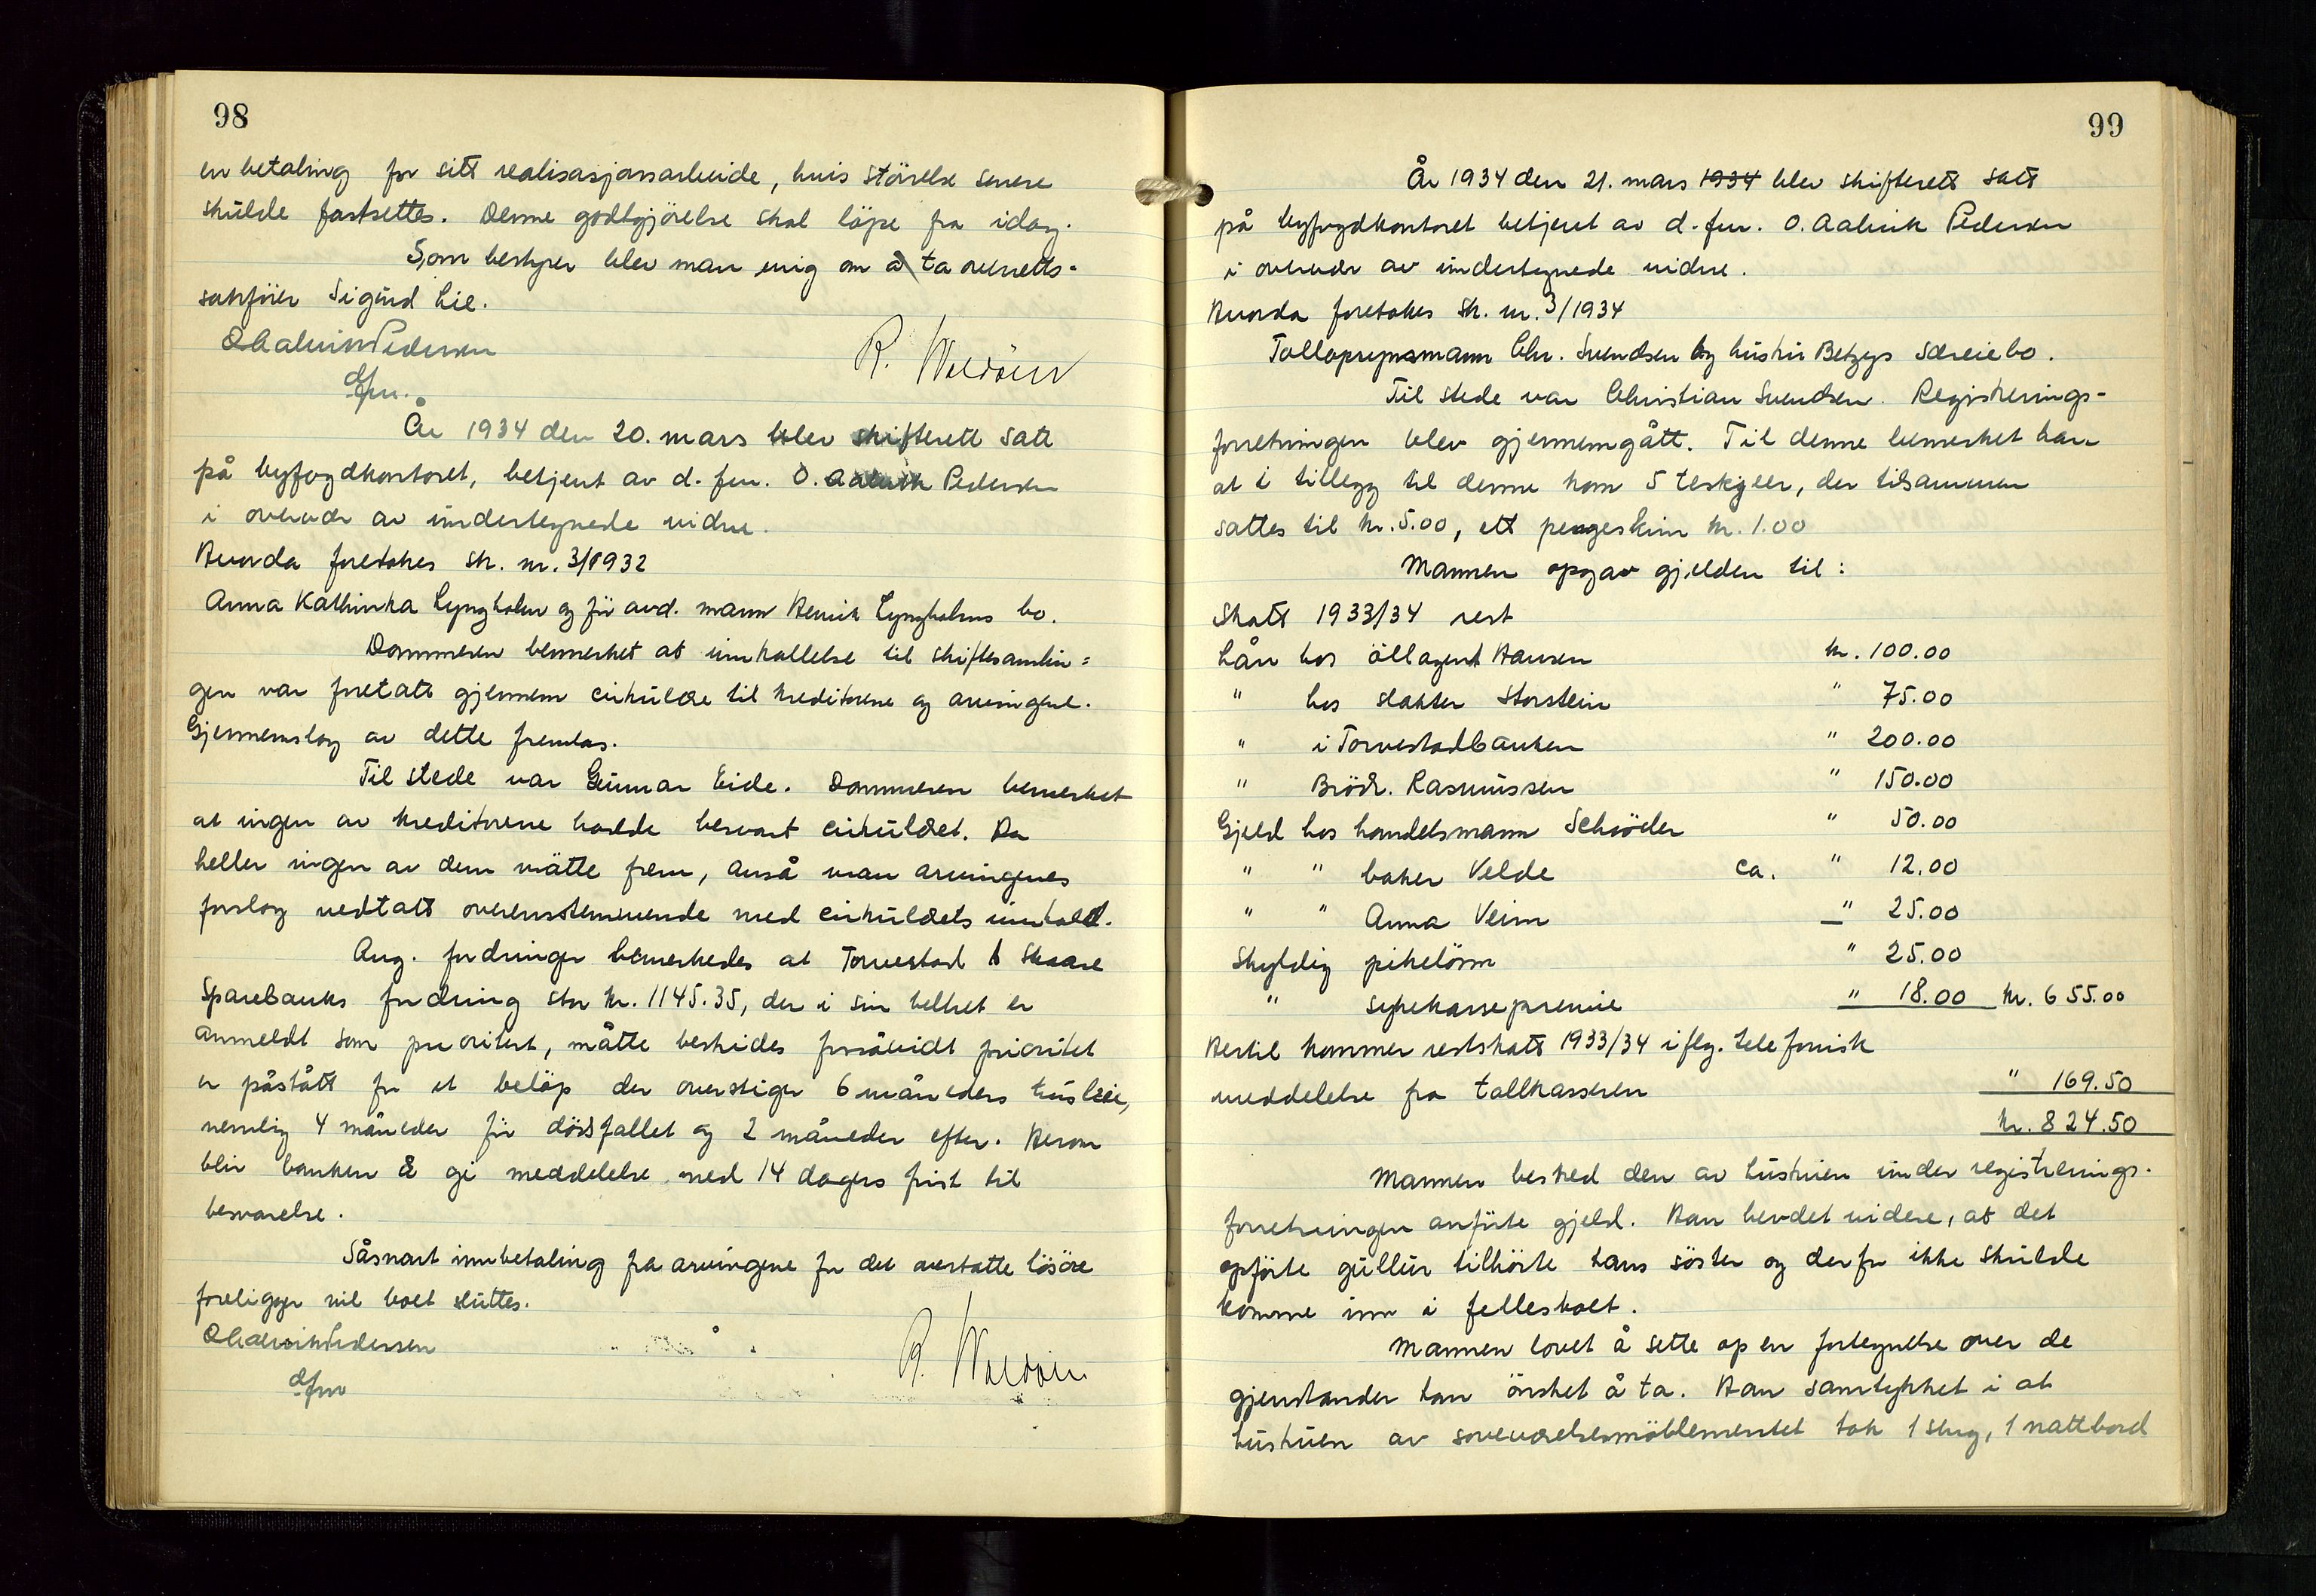 98
en betaling for sitt realisasjonsarbeide, hvis störelse senere
skulde fastsettes. Denne godtgjörelse skal löpe fra idag.
Som bestyrer blev man enig om å ta overretts-
sakförer Sigurd Lie.
O Aalvik Pedersen
dfm.
År 1934 den 20. mars blev skifterett satt
på byfogdkontoret, betjent av d. fm. O. Aalvik Pedersen
i overvær av undertegnede vidne.
Hvorda foretokes sk. nr. 3/1932
Anna Kathinka Lyngholm og för avd. mann Henrik Lyngholms bo.
Dommeren bemerket at innkallelse til skiftesamlin=
gen var foretatt gjennem cirkulære til kreditorene og arvingene.
Gjennemslag av dette fremlas.
Til stede var Gunnar Eide. Dommeren bemerket
at ingen av kreditorene hadde besvart cirkulæret. Da
heller ingen av dem mötte frem, anså man arvingenes
forslag vedtatt overensstemmende med cirkulærets innhold.
Ang. fordringer bemerkedes at Torvestad & Skaare
Sparebanks fordring stor kr. 1145.35, der i sin helhet er
anmeldt som prioritert, måtte bestrides forsåvidt prioritet
er påstått for et belöp der overstiger 6 måneders husleie,
nemlig 4 måneder för dödsfallet og 2 måneder efter. Herom
blir banken å gi meddelelse med 14 dagers frist til
besvarelse.
Såsnart innbetaling fra arvingene for det overtatte lösöre
foreligger vil boet sluttes.
O Aalvik Pedersen
dfm
99
År 1934 den 21. mars 1934 blev skifterett satt
på byfogdkontoret betjent av d. fm. O. Aalvik Pedersen
i overvær av undertegnede vidne.
Hvorda foretokes sk. nr. 3/1934
Tollopsynsmann Chr. Svendsen og hustru Betzys særeiebo.
Til stede var Christian Svendsen. Registrerings-
forretningen blev gjennemgått. Til denne bemerket han
at i tillegg til denne kom 5 teskjeer, der tilsammen
sattes til kr. 5.00, ett pengeskrin kr. 1.00
Mannen opgav gjelden til:
Skatt 1933/34 rest
Lån hos öllagent Hansen kr. 100.00
" hos slakter Storstein " 75.00
" i Torvestadbanken " 200.00
" Brödr. Rasmussen " 150.00
Gjeld hos handelsmann Schröder " 50.00
" " baker Velde ca. " 12.00
" " Anna Veim " 25.00
Skyldig pikelönn " 25.00
" sykekassepremie " 18.00 kr. 655.00
Hertil kommer restskatt 1933/34 iflg. telefonisk
meddelelse fra tollkasseren " 169.50
kr. 824.50
Mannen bestred den av hustruen under registrerings-
forretningen anförte gjeld. Han hevdet videre, at det
opförte gullur tilhörte hans söster og derfor ikke skulde
komme inn i fellesboet.
Mannen lovet å sette op en fortegnelse over de
gjenstander han önsket å ta. Han samtykket i at
hustruen av soveværelsesmöblementet tok 1 seng, 1 nattbord